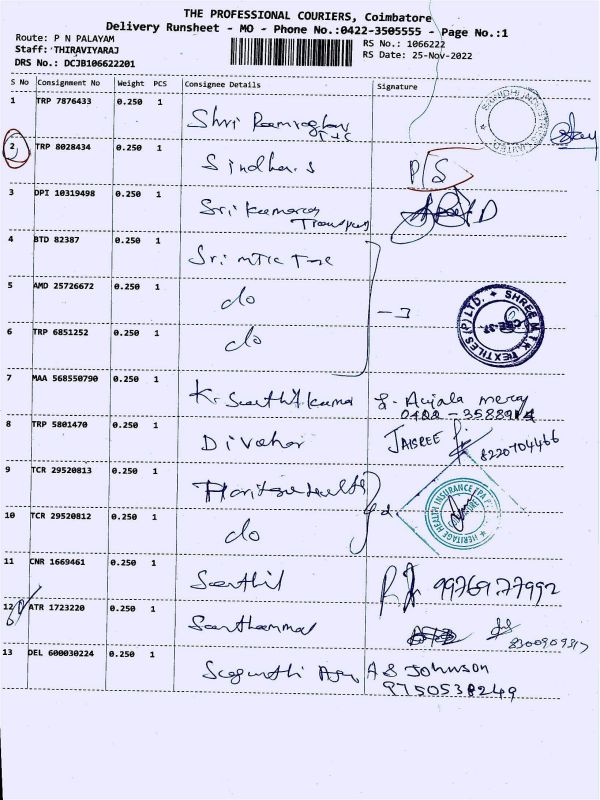 THE PROFESSIONAL COURIERS, Coimbatore
Delivery Runsheet - MO - Phone No.:0422-3505555 - Page No.:1
Route: P N PALAYAM
RS No.: 1066222
Staff: THIRAVIYARAJ
RS Date: 25-Nov-2022
DRS No.: DCJB106622201
S No Consignment No Weight PCS Consignee Details Signature
1 TRP 7876433 0.250 1
Shri
2 TRP 8028434 0.250 1
Sindhu.S P/S
3 DPI 10319498 0.250 1
Sri Kumaran
Transport
4 BTD 82387 0.250 1
Sri
5 AMD 25726672 0.250 1
do
-3
SHREE M.T.K. TEXTILES (P) LTD.
6 TRP 6851252 0.250 1
do
7 MAA 568550790 0.250 1
K. Senthil Kumar
8 TRP 5801470 0.250 1
Divahar JAISREE 8220704466
9 TCR 29520813 0.250 1
HERITAGE HEALTH INSURANCE TPA
10 TCR 29520812 0.250 1
do
11 CNR 1669461 0.250 1
Senthil 9976977992
12 ATR 1723220 0.250 1
Santhammal 8300909317
13 DEL 600030224 0.250 1
A S Johnson
9750538249